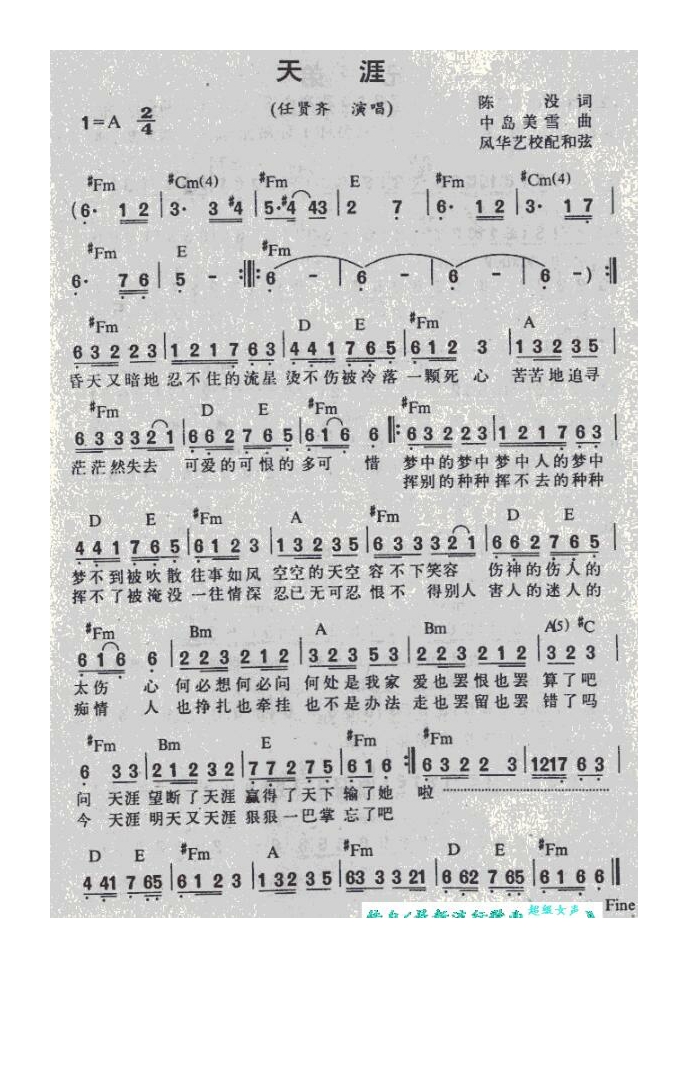 天 涯
(任贤齐 演唱)
陈 没 词
中 岛 美 雪 曲
风华艺校配和弦
1=A 2/4
#Fm #Cm(4) #Fm E #Fm #Cm(4)
(6· 1 2 | 3· 3 #4 | 5·#4 43 | 2 7 | 6· 1 2 | 3· 1 7 |
#Fm E #Fm
6· 7 6 | 5 - :||: 6 - | 6 - | 6 - | 6 -) :||
#Fm D E #Fm A
6 3 2 2 3 | 1 2 1 7 6 3 | 4 4 1 7 6 5 | 6 1 2 3 | 1 3 2 3 5 |
昏天又暗地 忍不住的流星 烫不伤被冷落 一颗死 心 苦苦地追寻
#Fm D E #Fm #Fm
6 3 3 3 3 2 1 | 6 6 2 7 6 5 | 6 1 6 6 ||: 6 3 2 2 3 | 1 2 1 7 6 3 |
茫茫然失去 可爱的可恨的 多可 惜 梦中的梦中 梦中人的梦中
挥别的种种 挥不去的种种
D E #Fm A #Fm D E
4 4 1 7 6 5 | 6 1 2 3 | 1 3 2 3 5 | 6 3 3 3 2 1 | 6 6 2 7 6 5 |
梦不到被吹散 往事如风 空空的天空 容不下笑容 伤神的伤人的
挥不了被淹没 一往情深 忍已无可忍 恨不 得别人 害人的迷人的
#Fm Bm A Bm A(5) #C
6 1 6 6 | 2 2 3 2 1 2 | 3 2 3 5 3 | 2 2 3 2 1 2 | 3 2 3 |
太伤 心 何必想何必问 何处是我家 爱也罢恨也罢 算了吧
痴情 人 也挣扎也牵挂 也不是办法 走也罢留也罢 错了吗
#Fm Bm E #Fm #Fm
6 3 3 | 2 1 2 3 2 | 7 7 2 7 5 | 6 1 6 :|| 6 3 2 2 3 | 1217 6 3 |
问 天涯 望断了天涯 赢得了天下 输了她 啦
今 天涯 明天又天涯 狠狠一巴掌 忘了吧
D E #Fm A #Fm D E #Fm
4 41 7 65 | 6 1 2 3 | 1 32 35 | 63 3 3 21 | 6 62 7 65 | 6 1 6 6 ||
Fine
超级女声